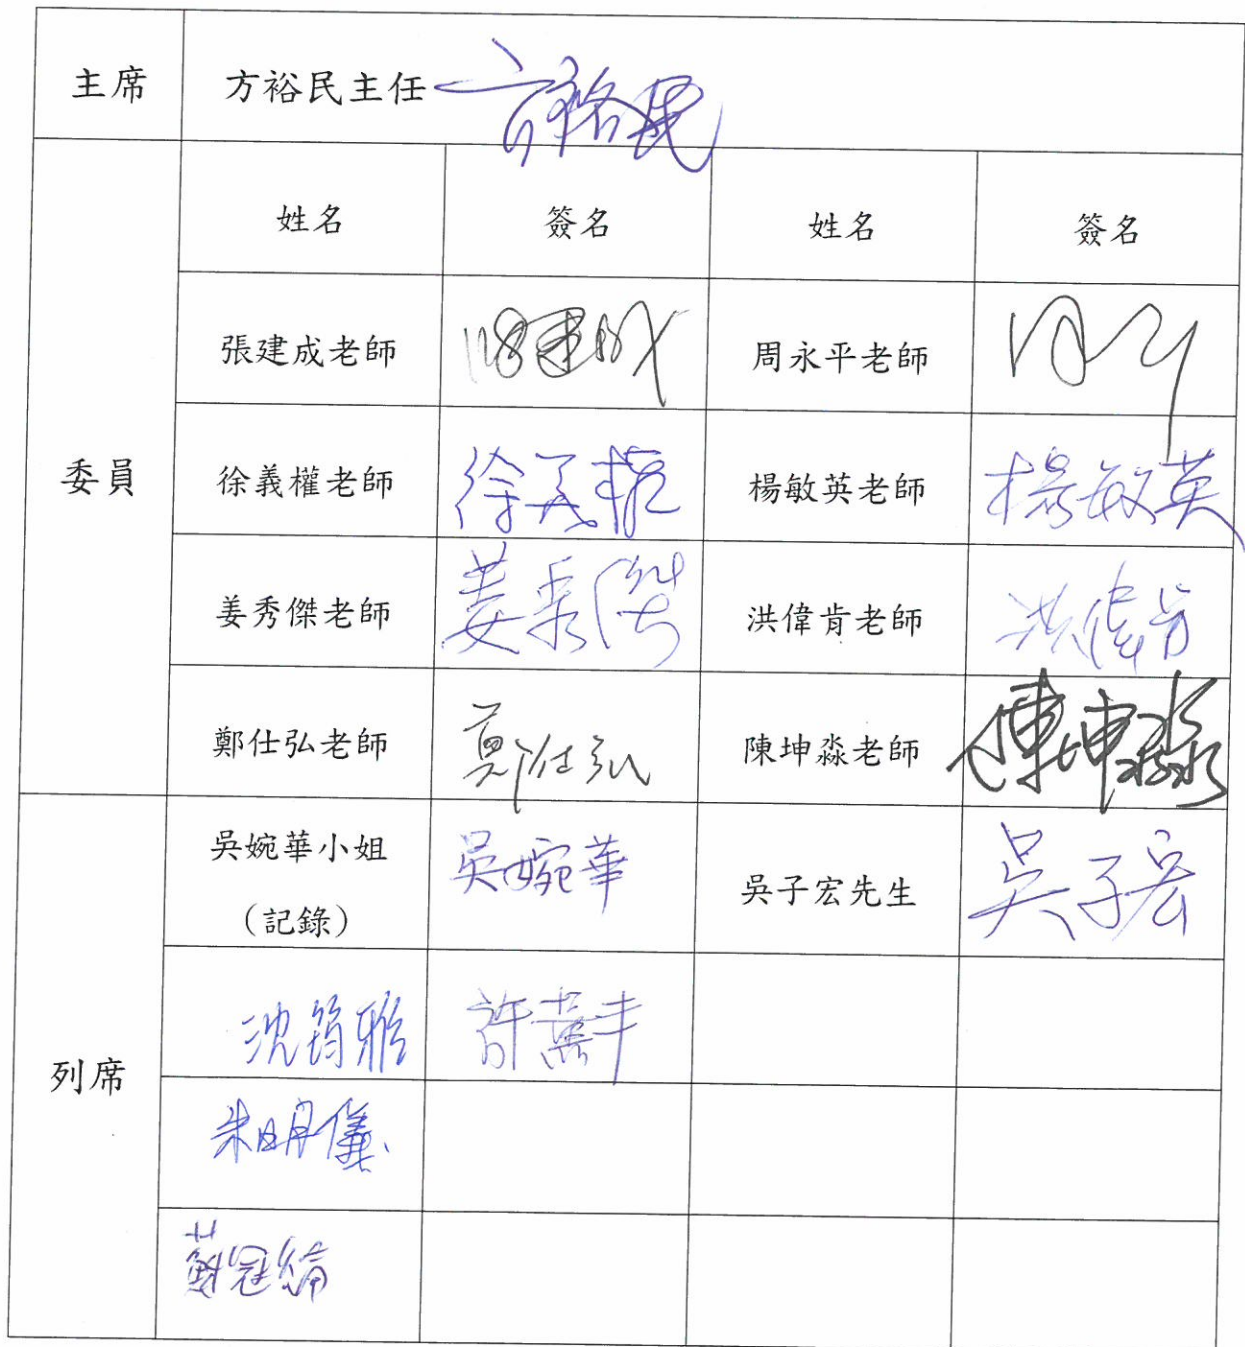 主席 方裕民主任 方裕民
姓名 簽名 姓名 簽名
張建成老師 張建成 周永平老師
委員 徐義權老師 徐義權 楊敏英老師 楊敏英
姜秀傑老師 姜秀傑 洪偉肯老師 洪偉肯
鄭仕弘老師 鄭仕弘 陳坤淼老師 陳坤淼
吳婉華小姐 吳婉華 吳子宏先生 吳子宏
(記錄)
列席 沈筠雅 許蕎丰
朱明儀
蘇冠綸